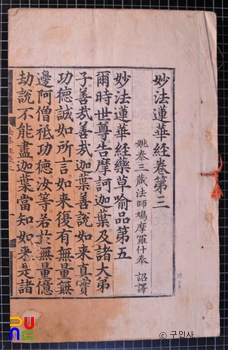 妙法蓮華經卷第三
姚秦三藏法師鳩摩羅什奉 詔譯
妙法蓮華經藥草喻品第五
爾時世尊告摩訶迦葉及諸大弟
子善哉善哉迦葉善說如來眞實
功德誠如所言如來復有無量無
邊阿僧祇功德汝等若於無量億
劫說不能盡迦葉當知如來是諸
© 구인사